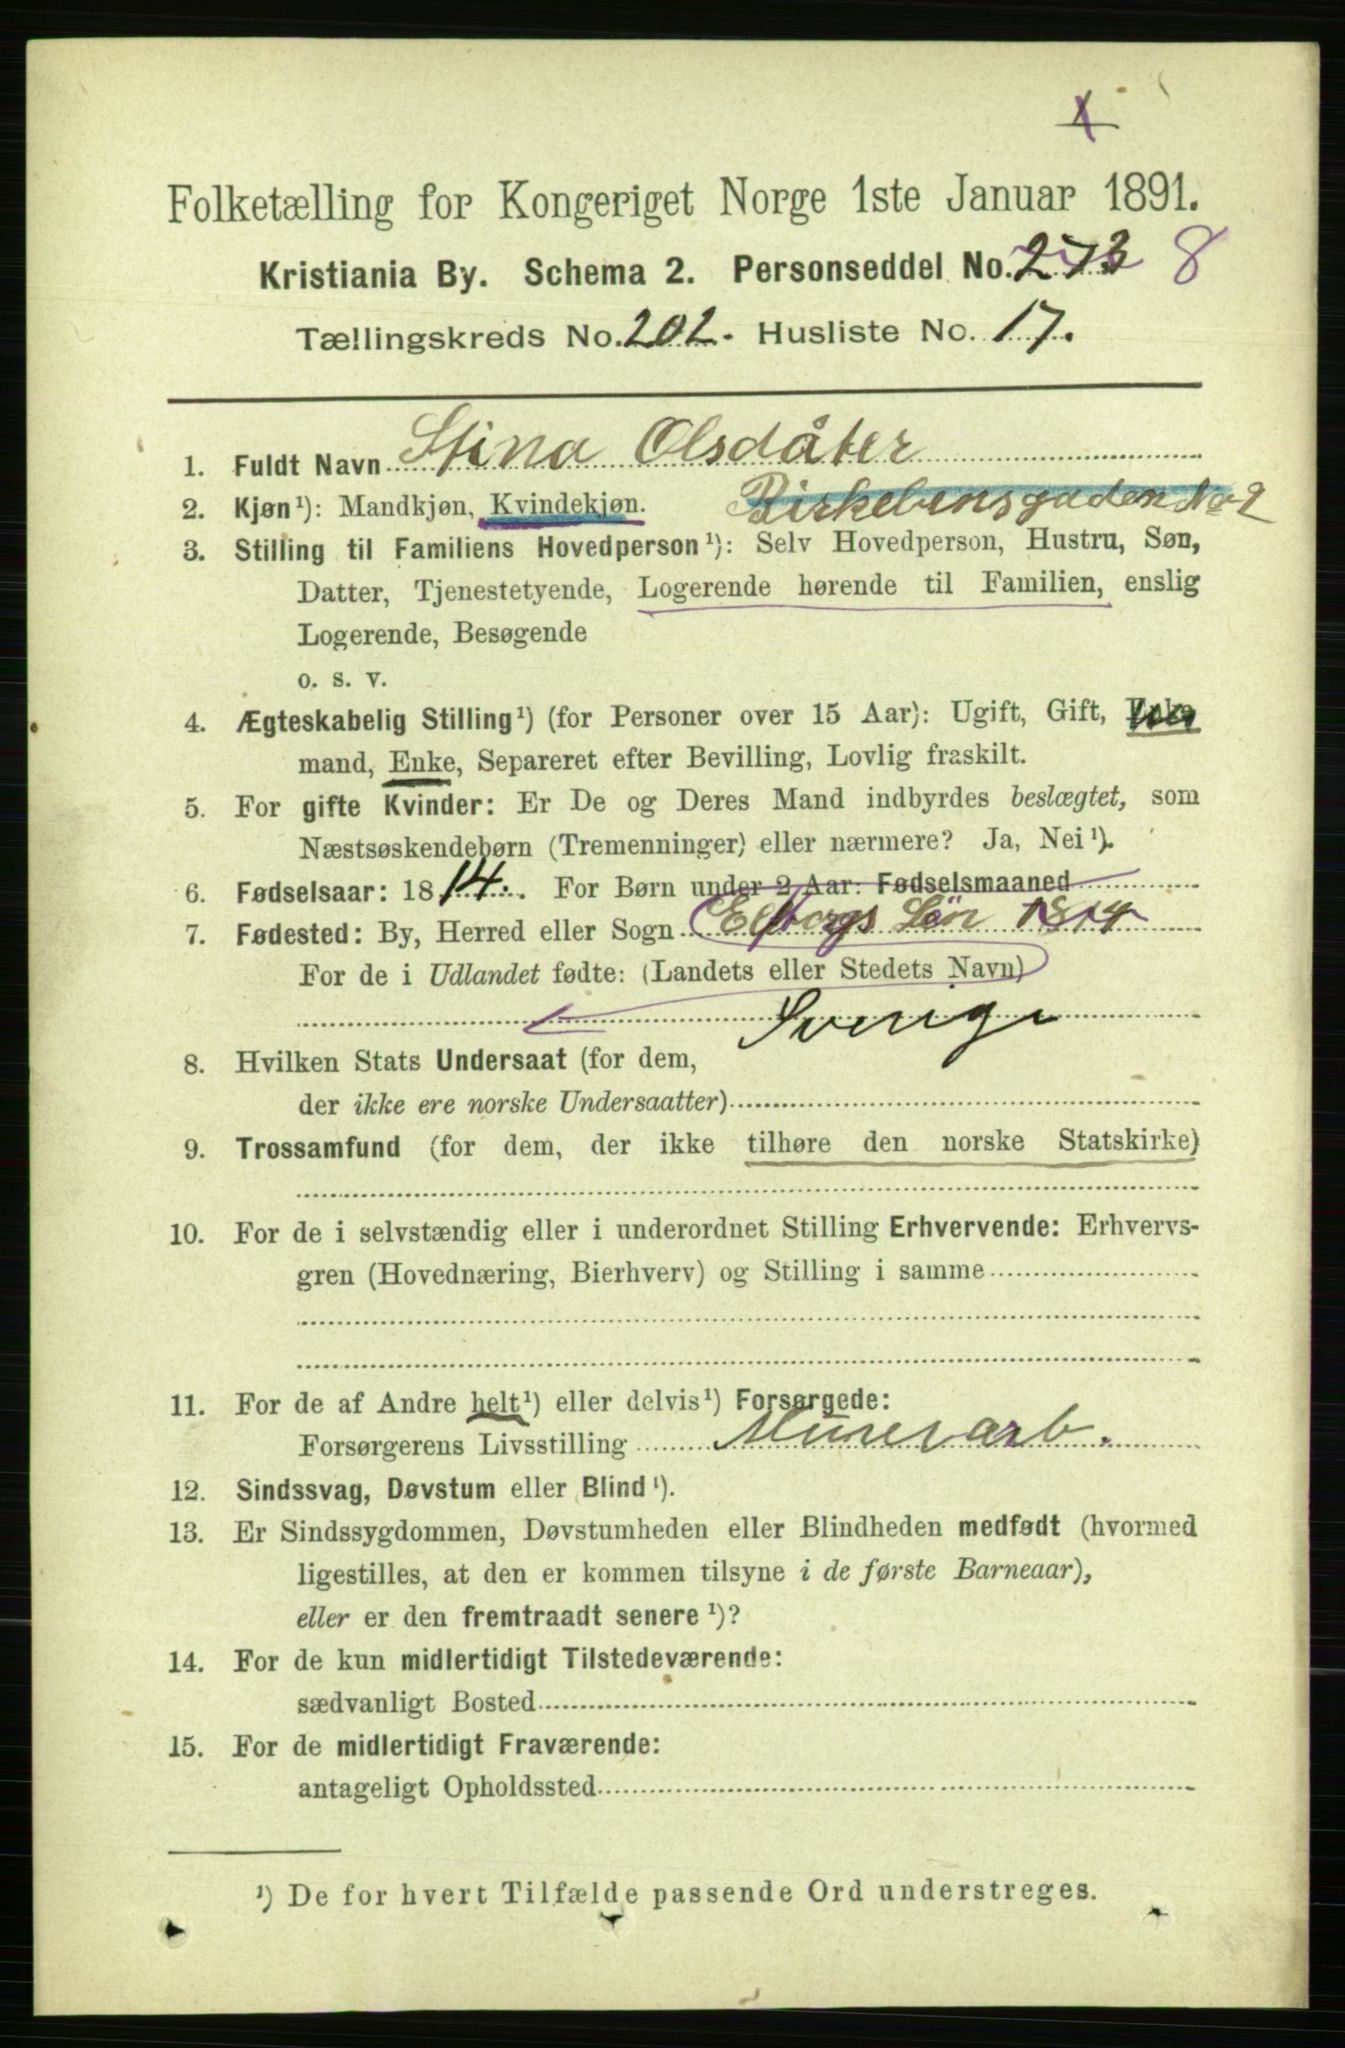 Folketælling for Kongeriget Norge 1ste Januar 1891.
Kristiania By. Schema 2. Personseddel No. 273 8
Tællingskreds No. 202. Husliste No. 17.
1. Fuldt Navn Stina Olsdåter
2. Kjøn¹): Mandkjøn, Kvindekjøn. Birkebensgaden No 2
3. Stilling til Familiens Hovedperson¹): Selv Hovedperson, Hustru, Søn,
Datter, Tjenestetyende, Logerende hørende til Familien, enslig
Logerende, Besøgende
o. s. v.
4. Ægteskabelig Stilling¹) (for Personer over 15 Aar): Ugift, Gift, Enke
mand, Enke, Separeret efter Bevilling, Lovlig fraskilt.
5. For gifte Kvinder: Er De og Deres Mand indbyrdes beslægtet, som
Næstsøskendebørn (Tremenninger) eller nærmere? Ja, Nei¹).
6. Fødselsaar: 1814. For Børn under 2 Aar: Fødselsmaaned
7. Fødested: By, Herred eller Sogn Elfborgs Län 1814
For de i Udlandet fødte: (Landets eller Stedets Navn)
Sverige
8. Hvilken Stats Undersaat (for dem,
der ikke ere norske Undersaatter)
9. Trossamfund (for dem, der ikke tilhøre den norske Statskirke)
10. For de i selvstændig eller i underordnet Stilling Erhvervende: Erhvervs-
gren (Hovednæring, Bierhverv) og Stilling i samme
11. For de af Andre helt¹) eller delvis¹) Forsørgede:
Forsørgerens Livsstilling Murerarb.
12. Sindssvag, Døvstum eller Blind¹).
13. Er Sindssygdommen, Døvstumheden eller Blindheden medfødt (hvormed
ligestilles, at den er kommen tilsyne i de første Barneaar),
eller er den fremtraadt senere¹)?
14. For de kun midlertidigt Tilstedeværende:
sædvanligt Bosted
15. For de midlertidigt Fraværende:
antageligt Opholdssted
¹) De for hvert Tilfælde passende Ord understreges.